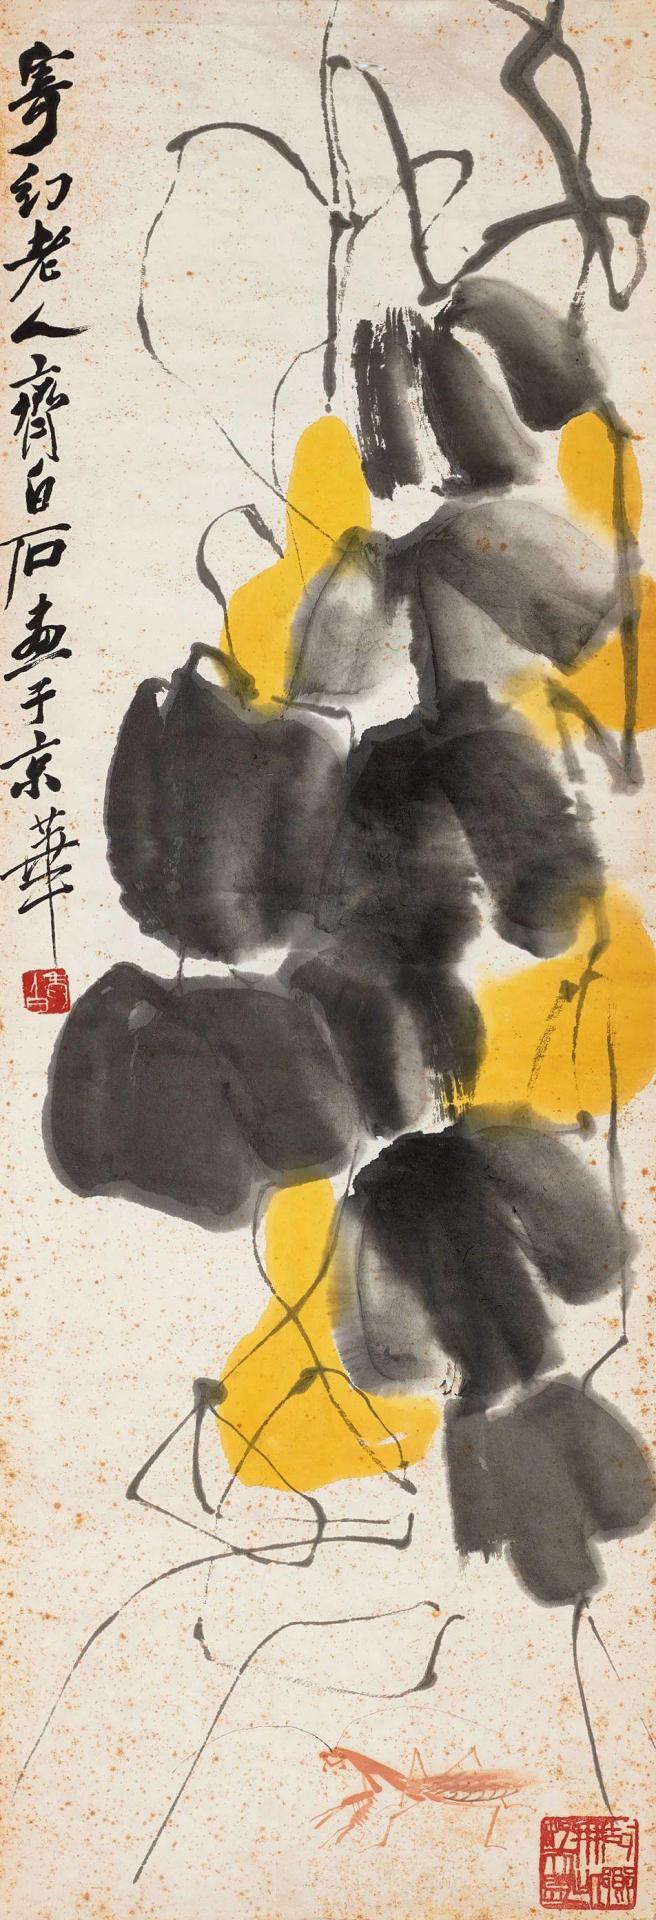 寄幻老人齊白石畫于京華